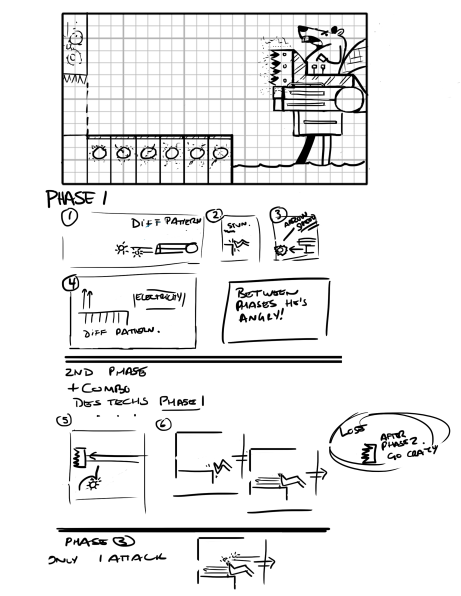 PHASE 1
1
DIFF PATTERN
2
STUN.
3
ARROW
SPEED
4
ELECTRICITY
DIFF PATTERN.
BETWEEN
PHASES HE'S
ANGRY!
2ND PHASE
+ COMBO
DES TECHS PHASE 1
5
6
LOSE
AFTER
PHASE 2.
GO CRAZY
PHASE 3
ONLY 1 ATTACK